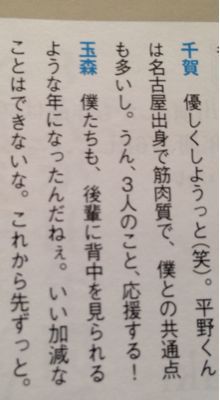 千賀　優しくしようっと(笑)。平野くん
は名古屋出身で筋肉質で、僕との共通点
も多いし。うん、3人のこと、応援する！
玉森　僕たちも、後輩に背中を見られる
ような年になったんだねぇ。いい加減な
ことはできないな。これから先ずっと。